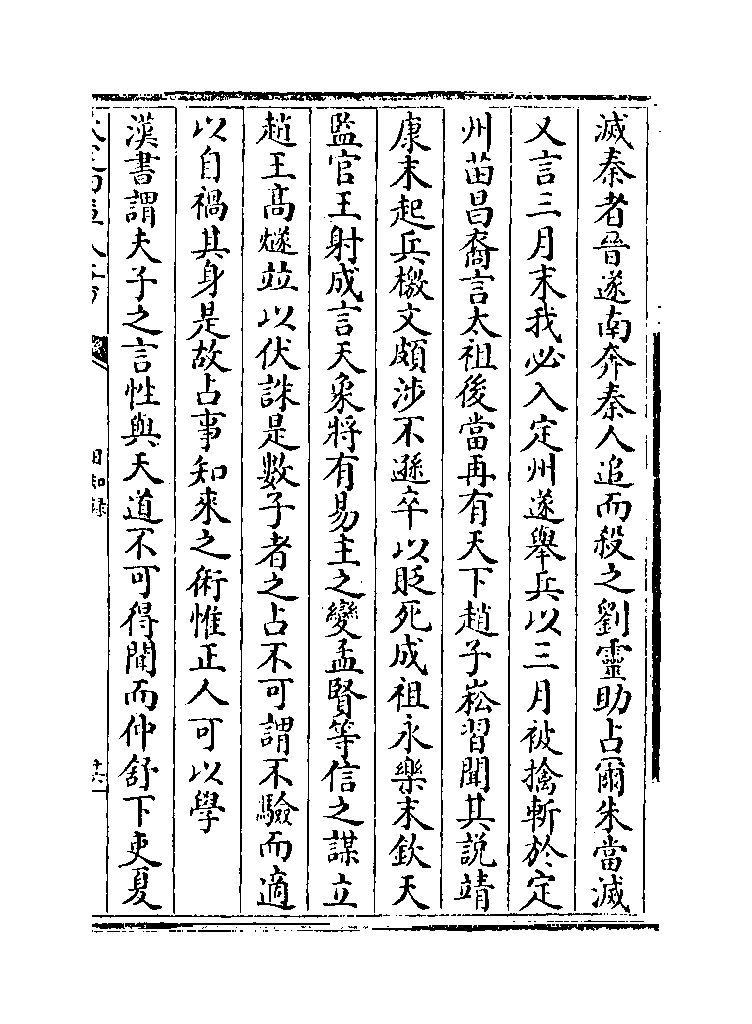 滅秦者晉遂南奔秦人追而殺之劉靈助占爾朱當滅
又言三月末我必入定州遂舉兵以三月被擒斬於定
州苗昌裔言太祖後當再有天下趙子崧習聞其説靖
康末起兵檄文頗涉不遜卒以貶死成祖永樂末欽天
監官王射成言天象將有易主之變孟賢等信之謀立
趙王高燧竝以伏誅是數子者之占不可謂不驗而適
以自禍其身是故占事知來之術惟正人可以學
漢書謂夫子之言性與天道不可得聞而仲舒下吏夏
日知録